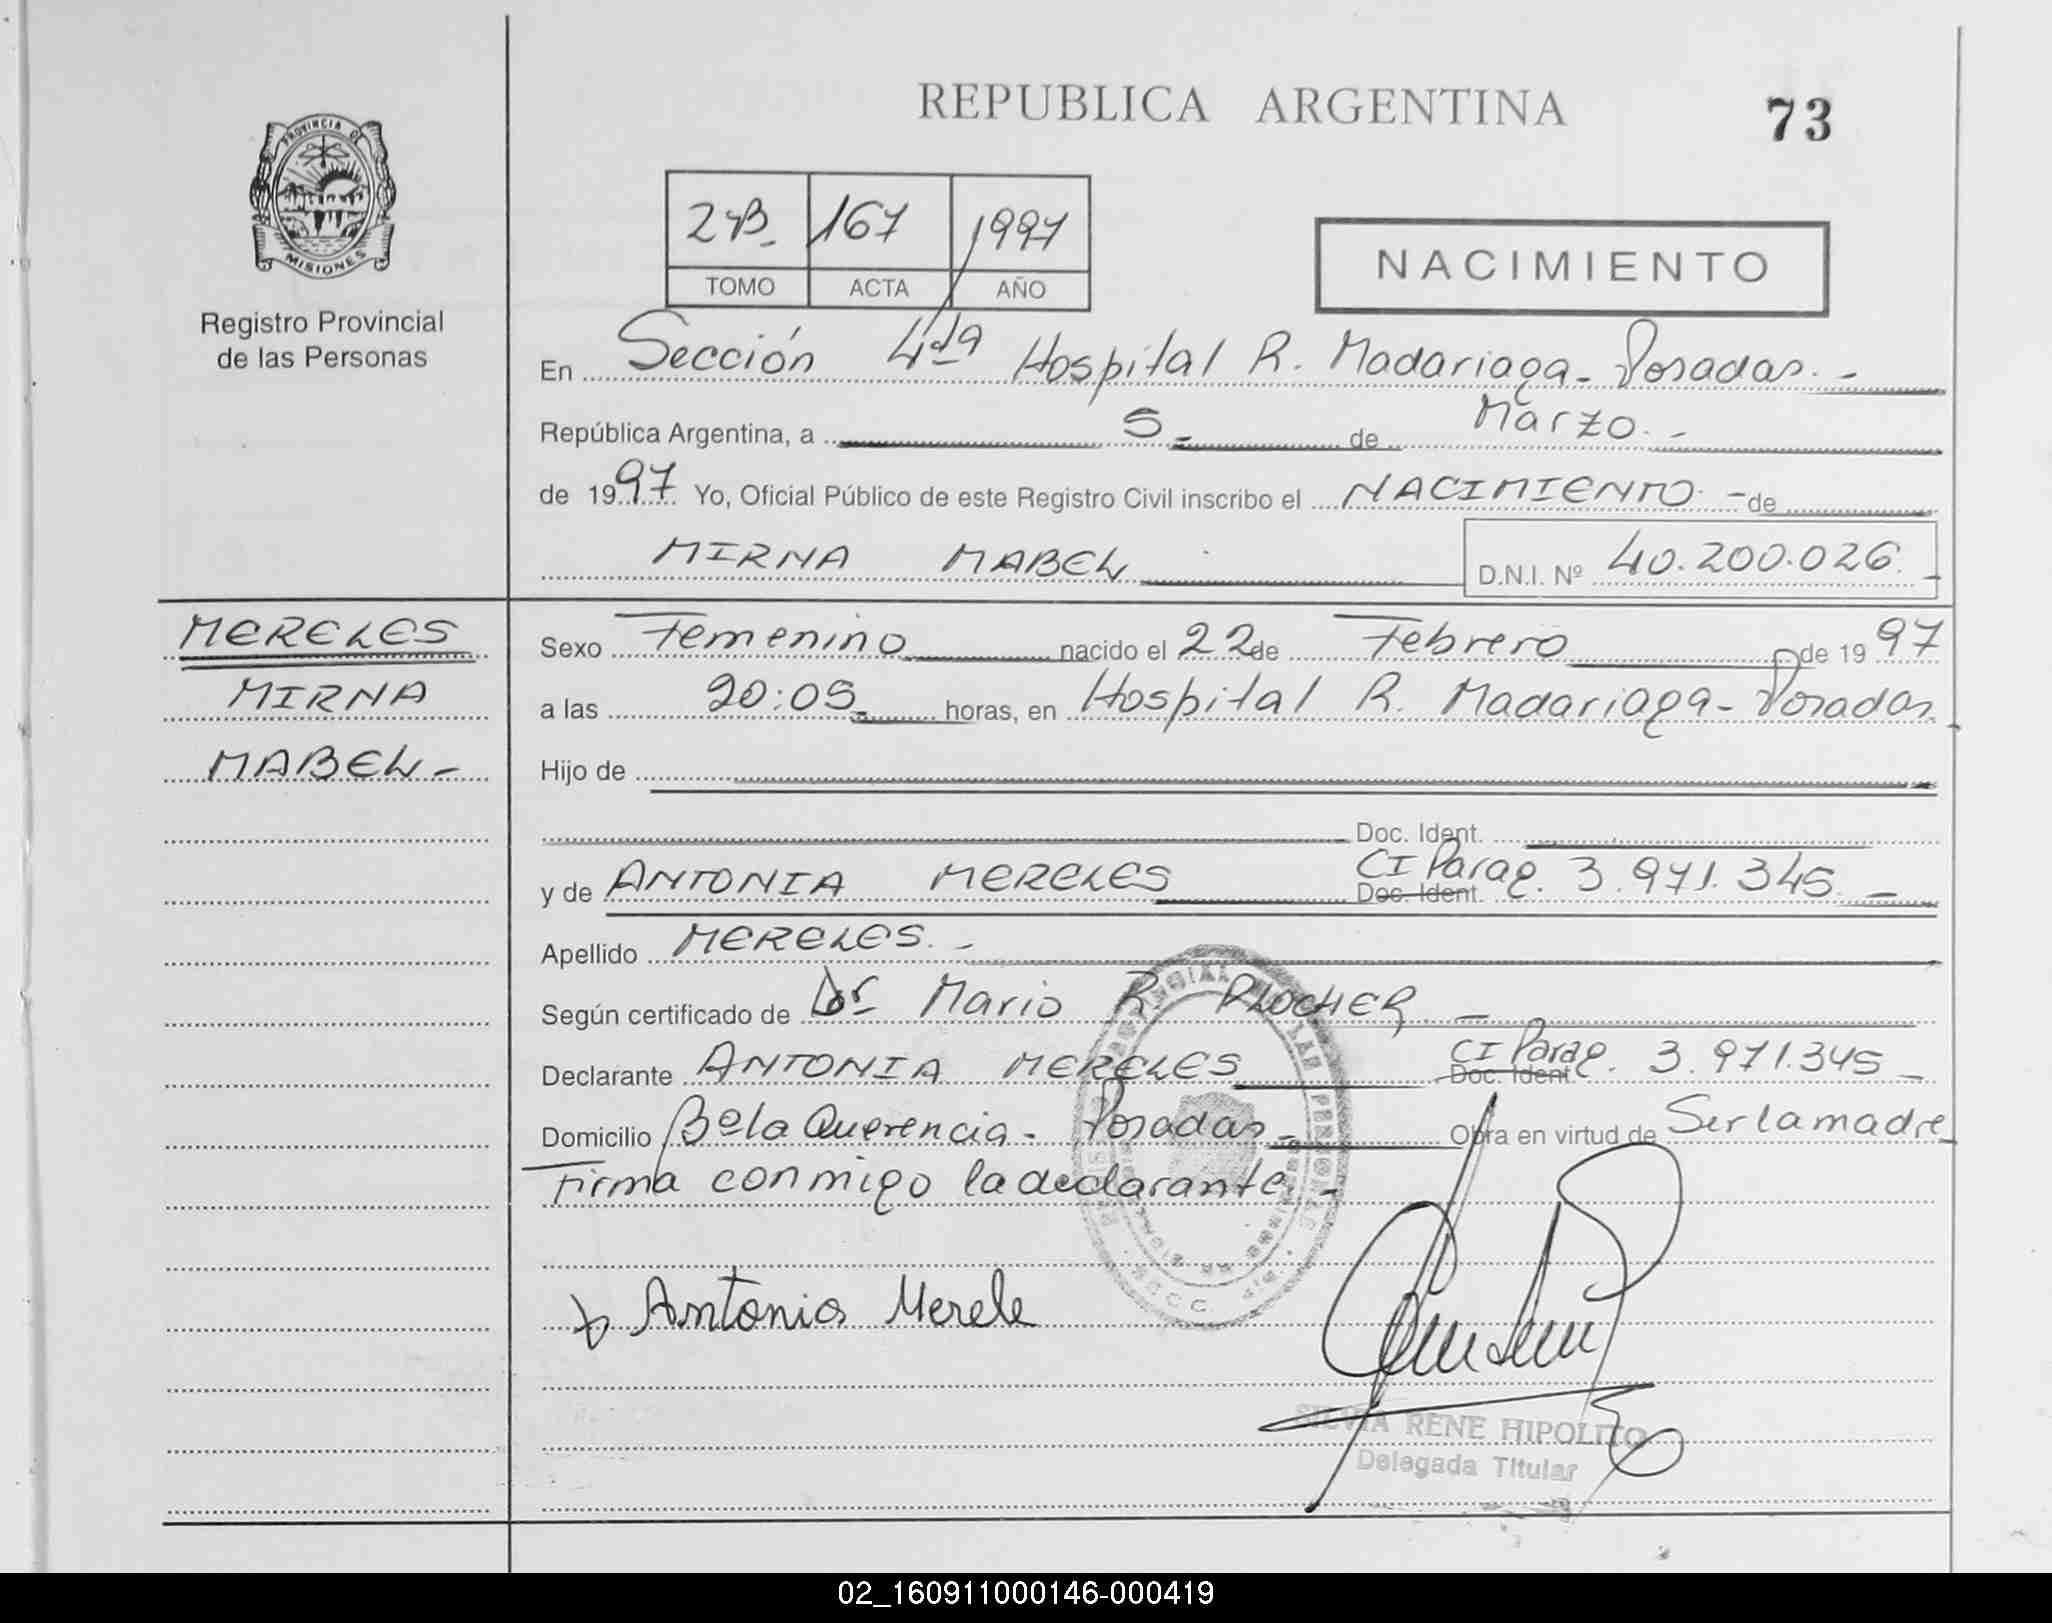 REPUBLICA ARGENTINA
73
PROVINCIA DE
MISIONES
Registro Provincial
de las Personas
2 B. 167 1997
TOMO ACTA AÑO
NACIMIENTO
En Sección 4ta Hospital R. Madariaga - Posadas. -
República Argentina, a 5 - de Marzo. -
de 1997 Yo, Oficial Público de este Registro Civil inscribo el NACIMIENTO - de
MIRNA MABEL D.N.I. Nº 40.200.026. -
MERELES
MIRNA
MABEL -
Sexo Femenino nacido el 22 de Febrero de 1997
a las 20:05 horas, en Hospital R. Madariaga - Posadas
Hijo de
Doc. Ident.
y de ANTONIA MERELES Doc. Ident. CI Parag. 3.971.345. -
Apellido MERELES. -
Según certificado de Dr Mario R. PLOCHER -
Declarante ANTONIA MERELES Doc. Ident. CI Parag. 3.971.345 -
Domicilio Bela Querencia - Posadas - Obra en virtud de Ser la madre
Firma conmigo la declarante. -
Antonia Merele
SILVIA RENE HIPOLITO
Delegada Titular
02_160911000146-000419